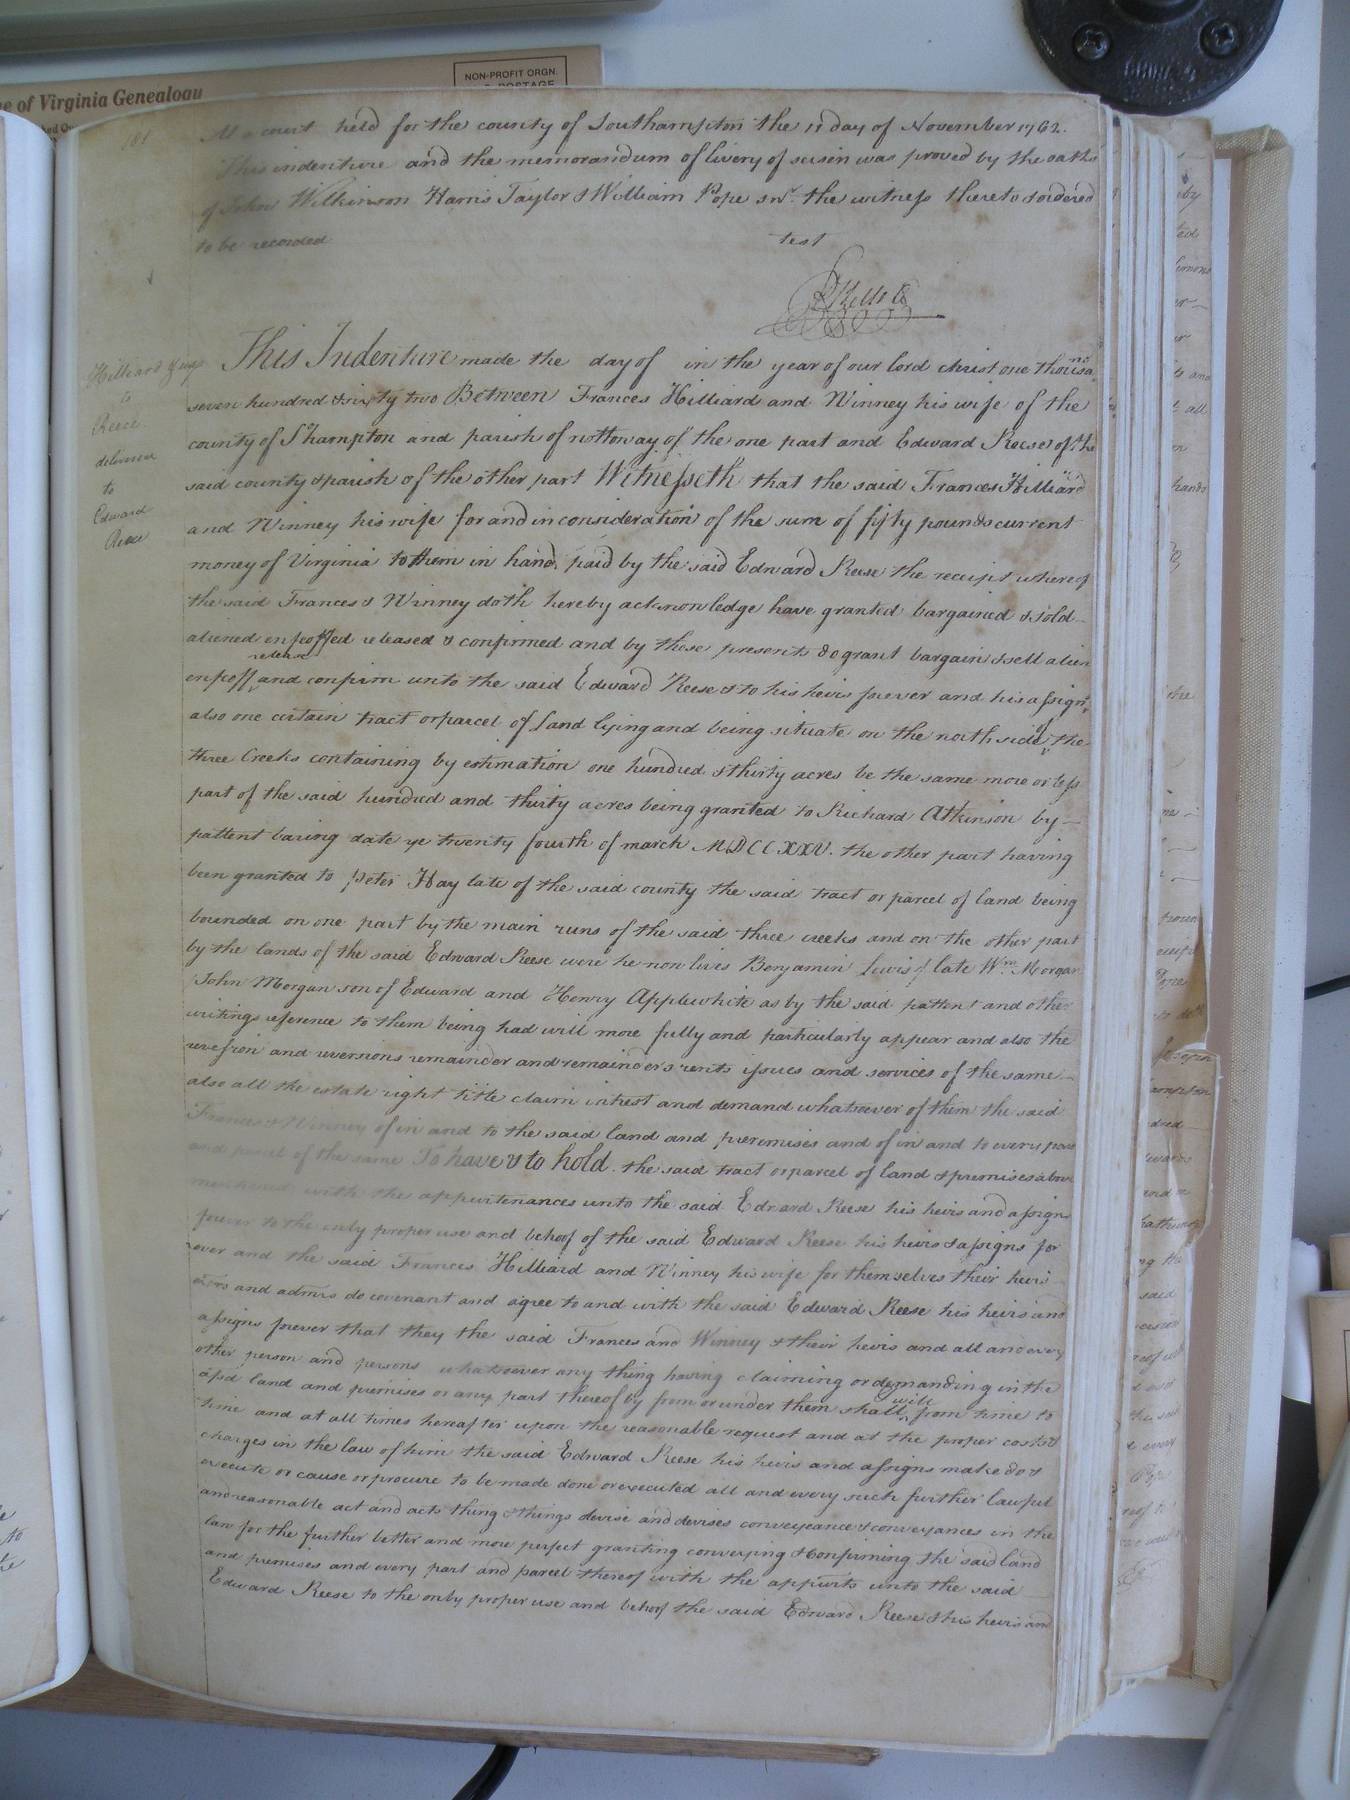 NON-PROFIT ORGN.
POSTAGE
e of Virginia Genealogy
181
At a court held for the county of Southampton the 11 day of November 1762.
This indenture and the memorandum of livery of seisin was proved by the oaths
of John Wilkinson Harris Taylor & William Pope snr. the witness thereto & ordered
to be recorded
test
R Kello Ct
Hilliard & ux
to
Reece
delivered
to
Edward
Reese
This Indenture made the day of in the year of our lord christ one thousand
seven hundred & sixty two Between Frances Hilliard and Winney his wife of the
county of S hampton and parish of nottoway of the one part and Edward Reese of the
said county & parish of the other part Witnesseth that the said Frances Hilliard
and Winney his wife for and in consideration of the sum of fifty pounds current
money of Virginia to them in hand paid by the said Edward Reese the receipt whereof
the said Frances & Winney doth hereby acknowledge have granted bargained & sold
aliened enfeoffed released & confirmed and by these presents do grant bargain & sell alien
enfeoff release and confirm unto the said Edward Reese & to his heirs forever and his assigns
also one certain tract or parcel of land lying and being situate on the north side of the
three Creeks containing by estimation one hundred & thirty acres be the same more or less
part of the said hundred and thirty acres being granted to Richard Atkinson by
pattent baring date ye twenty fourth of march MDCCXXV. the other part having
been granted to peter Hay late of the said county the said tract or parcel of land being
bounded on one part by the main runs of the said three creeks and on the other part
by the lands of the said Edward Reese were he now lives Benjamin Lewis late Wm Morgan
John Morgan son of Edward and Henry Applewhite as by the said pattent and other
writings reference to them being had will more fully and particularly appear and also the
reversion and reversions remainder and remainders rents issues and services of the same
also all the estate right title claim intrest and demand whatsoever of them the said
Frances & Winney of in and to the said land and premises and of in and to every part
and parcel of the same To have & to hold the said tract or parcel of land & premises above
mentioned with the appurtenances unto the said Edward Reese his heirs and assigns
forever to the only proper use and behoof of the said Edward Reese his heirs & assigns for
ever and the said Frances Hilliard and Winney his wife for themselves their heirs
exrs and admrs do covenant and agree to and with the said Edward Reese his heirs and
assigns forever that they the said Frances and Winney & their heirs and all and every
other person and persons whatsoever any thing having claiming or demanding in the
afsd land and premises or any part thereof by from or under them shall & will from time to
time and at all times hereafter upon the reasonable request and at the proper costs &
charges in the law of him the said Edward Reese his heirs and assigns make do &
execute or cause or procure to be made done or executed all and every such further lawful
and reasonable act and acts thing & things devise and devises conveyance & conveyances in the
law for the further better and more perfect granting conveying & confirming the said land
and premises and every part and parcel thereof with the appurts unto the said
Edward Reese to the only proper use and behoof the said Edward Reese & his heirs and